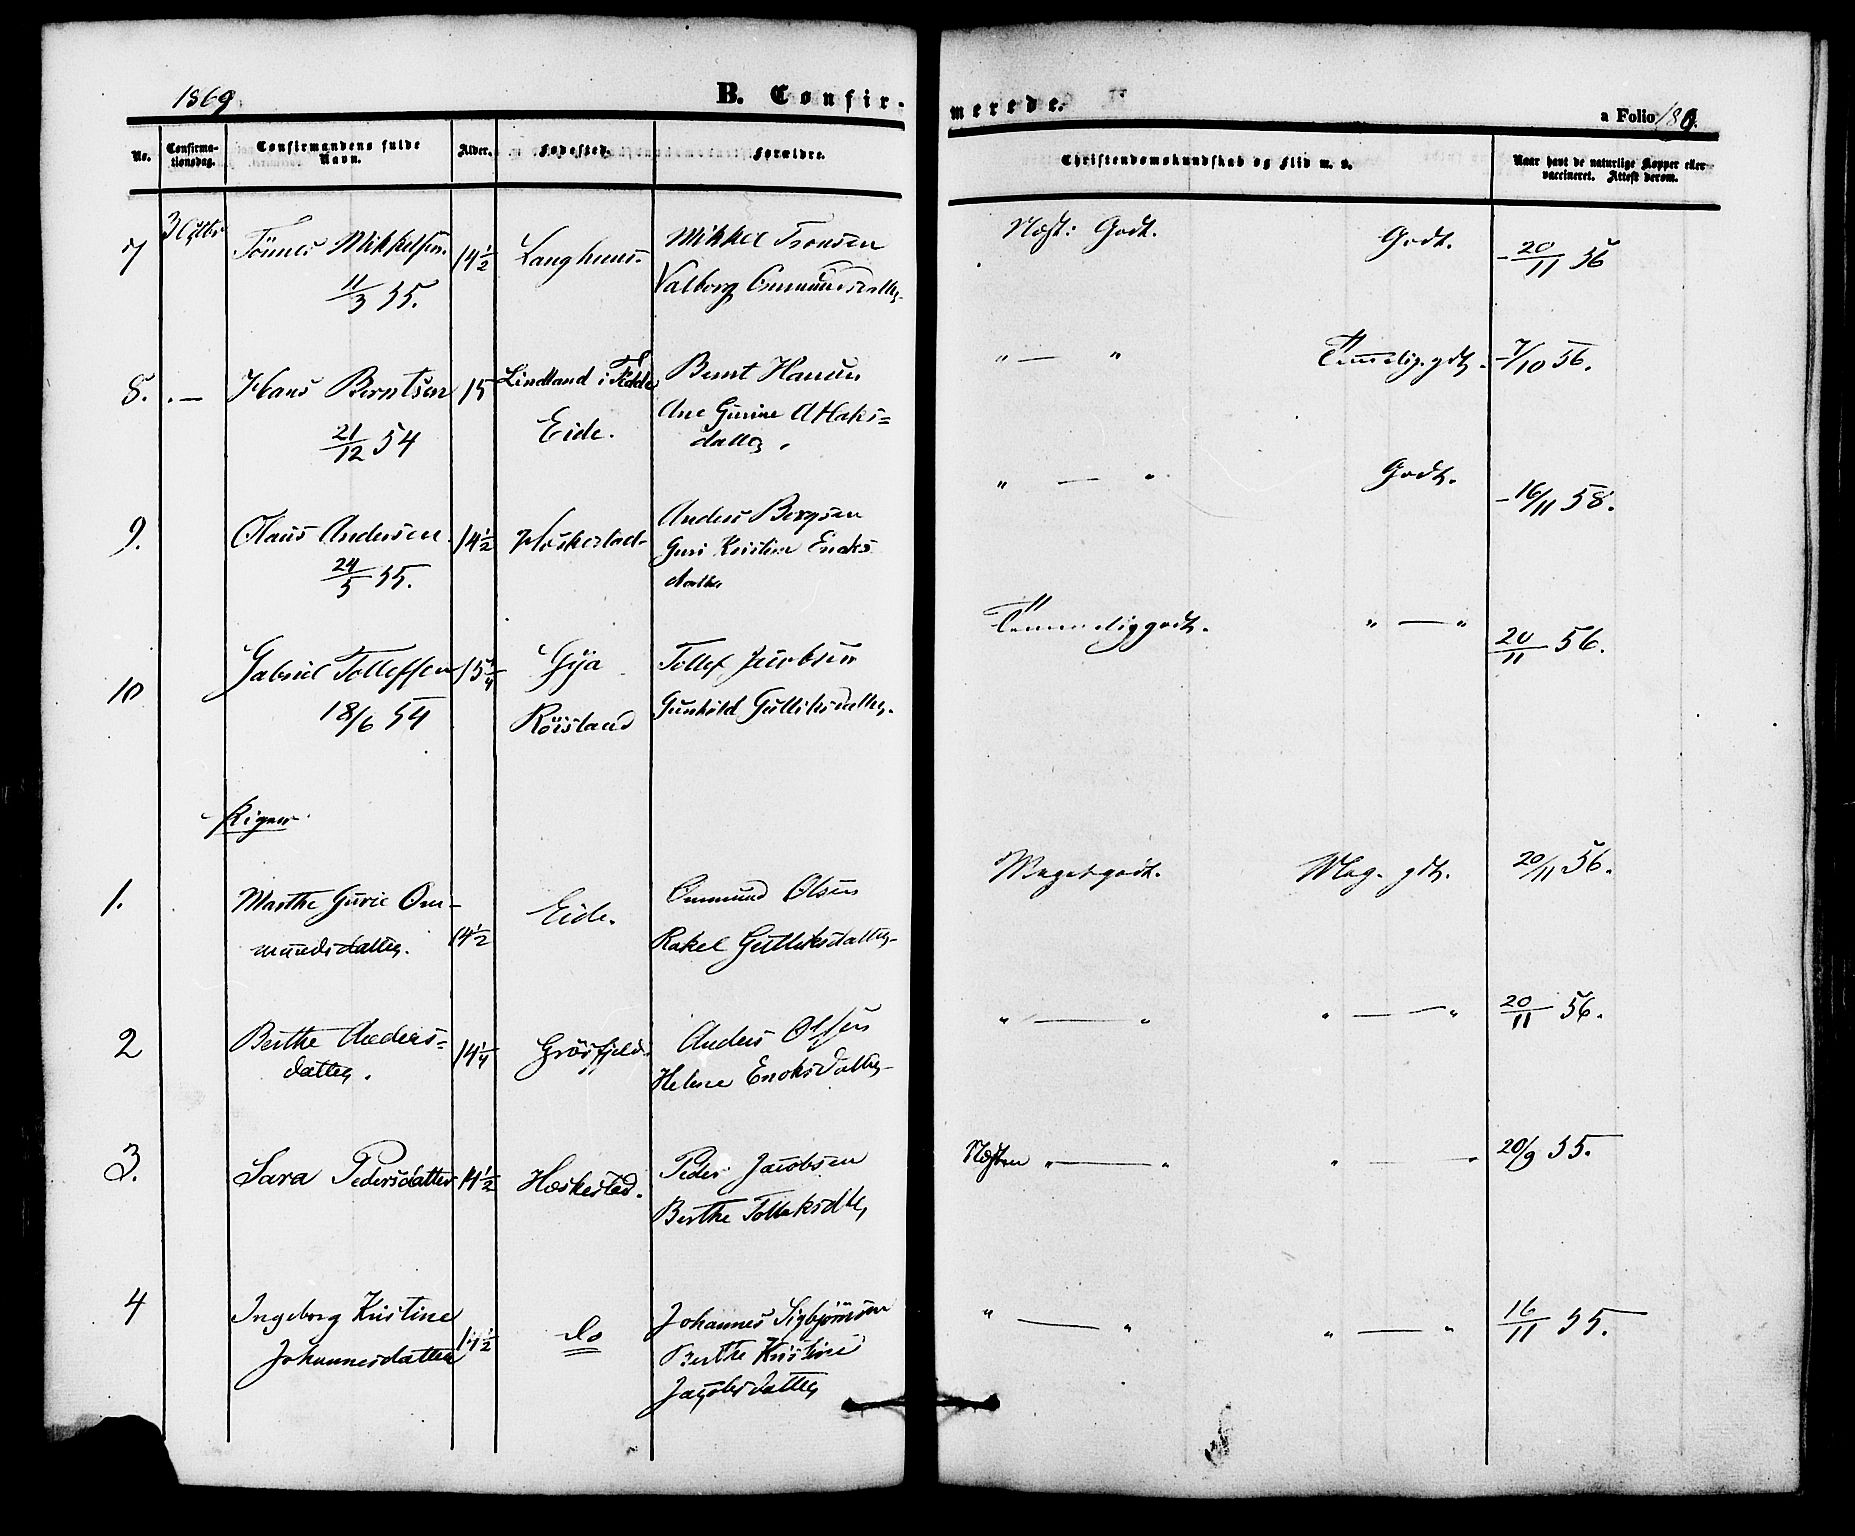 1869
B. Confirmerede.
a Folio 180.
No.
Confirmationsdag.
Confirmandens fulde Navn.
Alder.
Fødested.
Forældre.
Christendomskundskab og Flid m. v.
Naar havt de naturlige Kopper eller vaccineret. Attest derom.
7 3 Octbr Tönnes Mikkelsen. 14 1/2 Langhuus. Mikkel Tronsen Næst: Godt. Godt. 20/11 56
11/3 55. Valborg Ommundsdatter
8. — Hans Berntsen 15 Lindland i Fede Bernt Hansen " — " Temmelig gdt. 7/10 56.
21/12 54 Eide. Ane Gurine Aslaks=
datter.
9. Olaus Andersen 14 1/2 Hæskestad Anders Bergsen " — " Godt. 16/11 58.
24/5 55. Guri Kristine Enoks
datter
10 Gabriel Tollefsen 15 1/4 Gya Tollef Jacobsen Temmelig godt. " — " 20/11 56.
18/6 54 Röisland Gunhild Gulliksdatter.
Piger
1. Marthe Gurie Om- 14 1/2 Eide. Ommund Olsen Meget godt. Meg. gdt. 20/11 56.
mundsdatter. Rakel Gulleksdatter
2 Berthe Anders= 14 1/4 Grösfjeld. Anders Olsen " — " " — " 20/11 56.
datter. Helene Enoksdatter
3. Sara Pedersdatter 14 1/2 Hæskestad. Peder Jacobsen Næsten " — " " — " 20/9 55.
Berthe Tollaksdtr
4 Ingeborg Kristine 14 1/2 do Johannes Sigbjörnsen " — " " — " 16/11 55.
Johannesdatter Berthe Kristine
Jacobsdatter